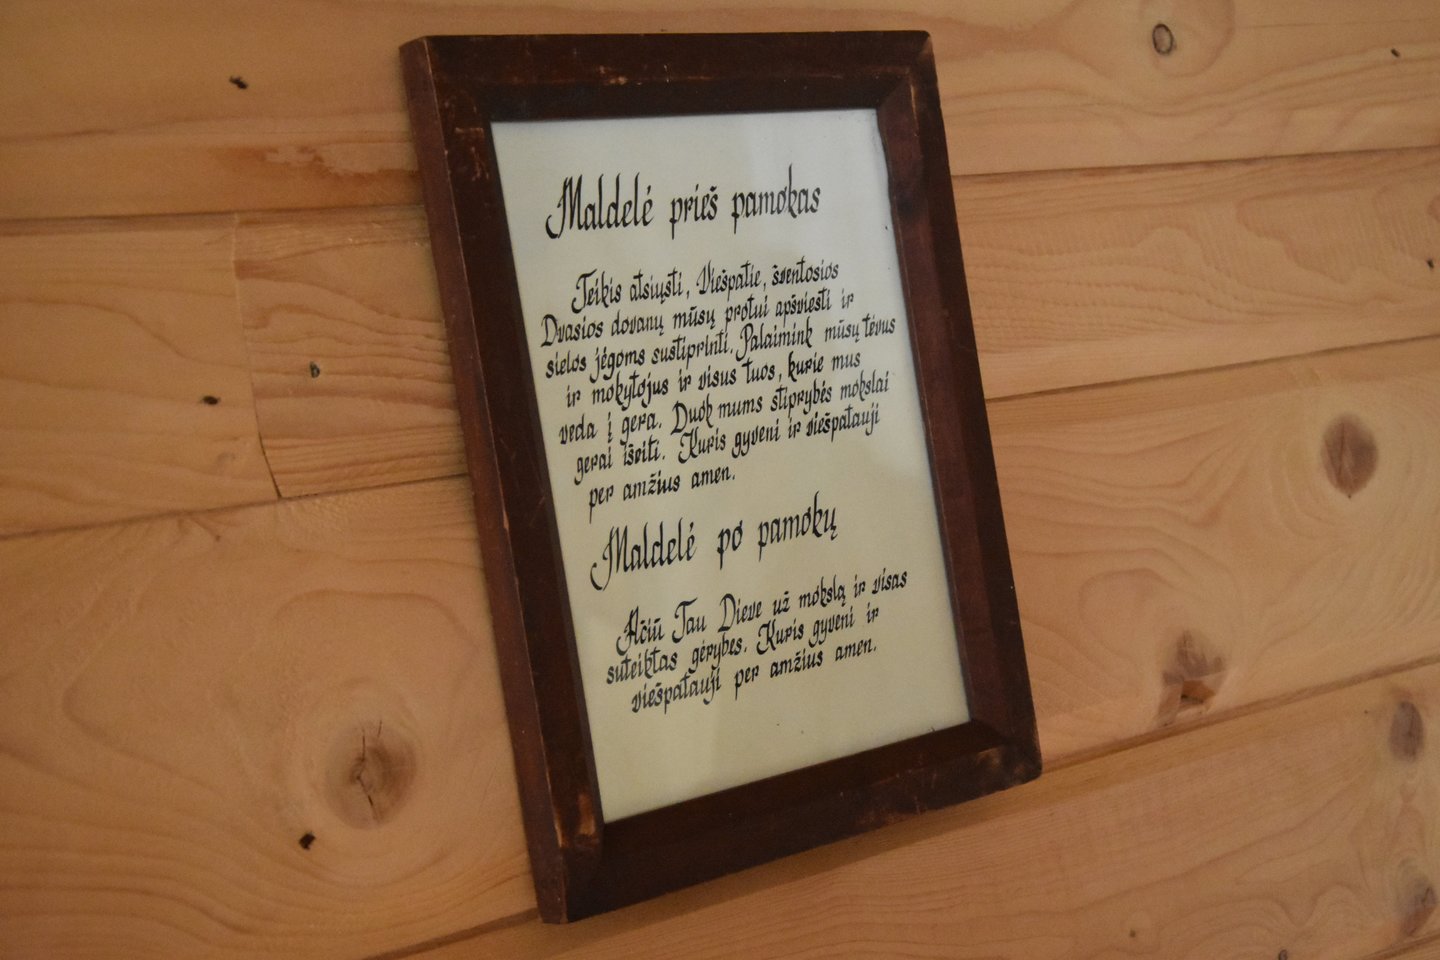 Maldelė prieš pamokas
Teikis atsiųsti, Viešpatie, šventosios
Dvasios dovanų mūsų protui apšviesti ir
sielos jėgoms sustiprinti. Palaimink mūsų tėvus
ir mokytojus ir visus tuos, kurie mus
veda į gera. Duok mums stiprybės mokslai
gerai išeiti. Kuris gyveni ir viešpatauji
per amžius amen.
Maldelė po pamokų
Ačiū Tau Dieve už mokslą ir visas
suteiktas gėrybes. Kuris gyveni ir
viešpatauji per amžius amen.